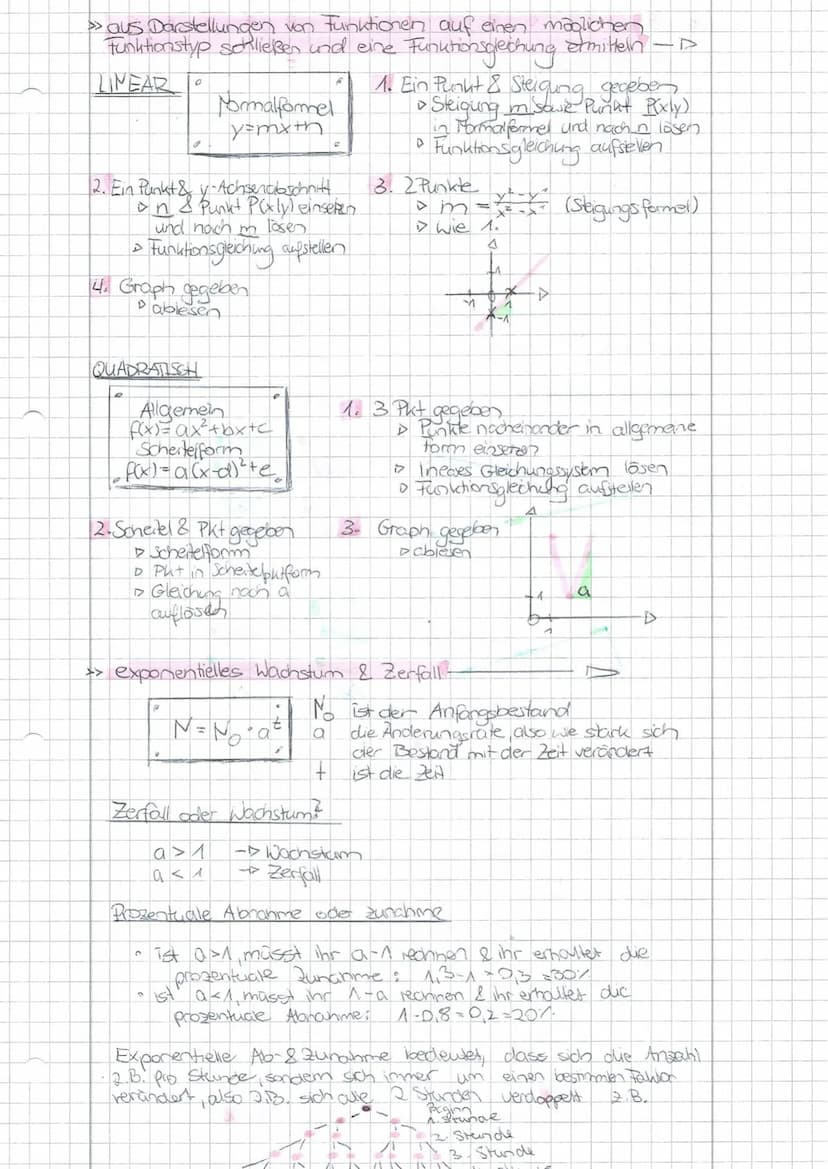 >> aus Darstellungen von Funktionen auf einen möglichen
Funktionstyp schließen und eine Funktionsgleichung ermitteln
LINEAR
Normalformel
y=mx+n
1. Ein Punkt & Steigung gegeben
▷ Steigung m sowie Punkt P(x|y)
in Normalformel und nach n lösen
▷ Funktionsgleichung aufstellen
2. Ein Punkt & y-Achsenabschnitt
▷ n & Punkt P(x|y) einsetzen
und nach m lösen
▷ Funktionsgleichung aufstellen
3. 2 Punkte
▷ m = y²-y¹/x²-x¹ (Steigungsformel)
▷ wie 1.
4. Graph gegeben
▷ ablesen
1
-1 1
-1
QUADRATISCH
Allgemein
f(x)=ax²+bx+c
Scheitelform
f(x)=a(x-d)²+e
1. 3 Pkt gegeben
▷ Punkte nacheinander in allgemeine
form einsetzen
▷ lineares Gleichungssystem lösen
▷ Funktionsgleichung aufstellen
2. Scheitel & Pkt gegeben
▷ Scheitelform
▷ Pkt in Scheitelpktform
▷ Gleichung nach a
auflösen
3. Graph gegeben
▷ ablesen
a
1
1
>> exponentielles Wachstum & Zerfall
N = N₀ · aᵗ
N₀ ist der Anfangsbestand
a die Änderungsrate, also wie stark sich
der Bestand mit der Zeit verändert
t ist die Zeit
Zerfall oder Wachstum?
a > 1 -▷ Wachstum
a < 1 -▷ Zerfall
Prozentuale Abnahme oder zunahme
◦ ist a>1, müsst ihr a-1 rechnen & ihr erhaltet die
prozentuale Zunahme: 1,3-1=0,3=30%
◦ ist a<1, müsst ihr 1-a rechnen & ihr erhaltet die
prozentuale Abnahme: 1-0,8=0,2=20%
Exponentielle Ab- & Zunahme bedeutet, dass sich die Anzahl
z.B. pro Stunde, sondern sich immer um einen bestimmten Faktor
verändert, also z.B. sich alle 2 Stunden verdoppelt z.B.
Beginn
1. Stunde
2. Stunde
3. Stunde